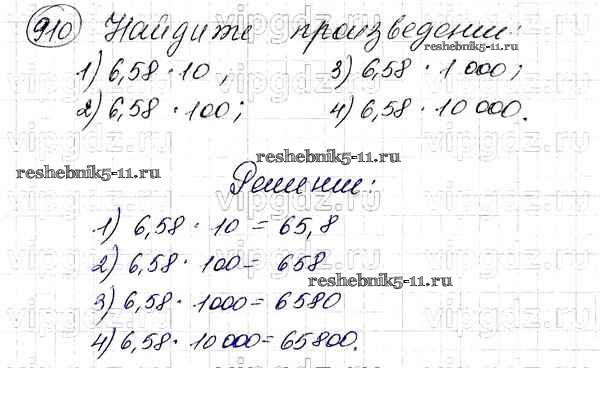 910 Найдите произведении:
1) 6,58 · 10; 3) 6,58 · 1 000;
2) 6,58 · 100; 4) 6,58 · 10 000.
Решении:
1) 6,58 · 10 = 65,8
2) 6,58 · 100 = 658
3) 6,58 · 1000 = 6580
4) 6,58 · 10 000 = 65800.
reshebnik5-11.ru
reshebnik5-11.ru
reshebnik5-11.ru
reshebnik5-11.ru
vipgdz.ru
vipgdz.ru
vipgdz.ru
vipgdz.ru